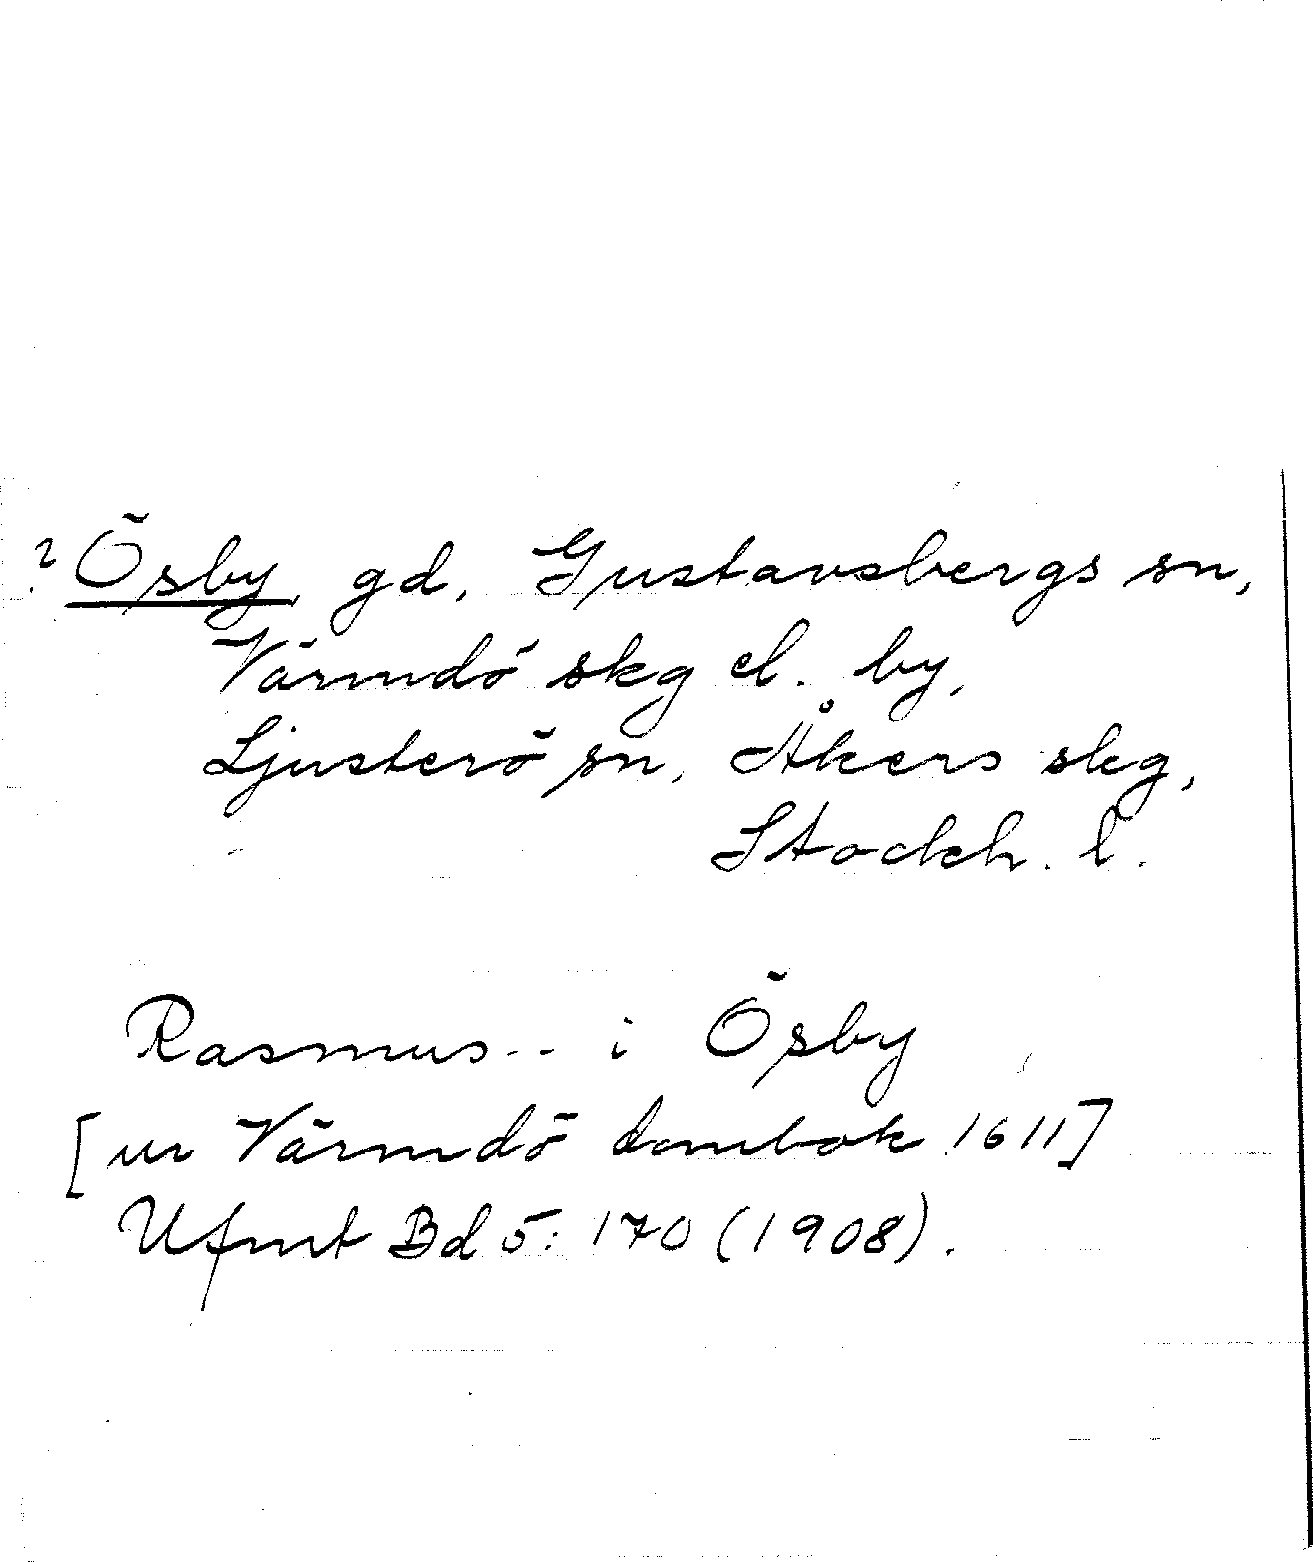 ? Ösby, gd, Gustavsbergs sn,
Värmdö skg el. by,
Ljusterö sn, Åkers skg,
Stockh. l.
Rasmus -- i Ösby
[ur Värmdö dombok 1611]
Ufmt Bd 5: 170 (1908).